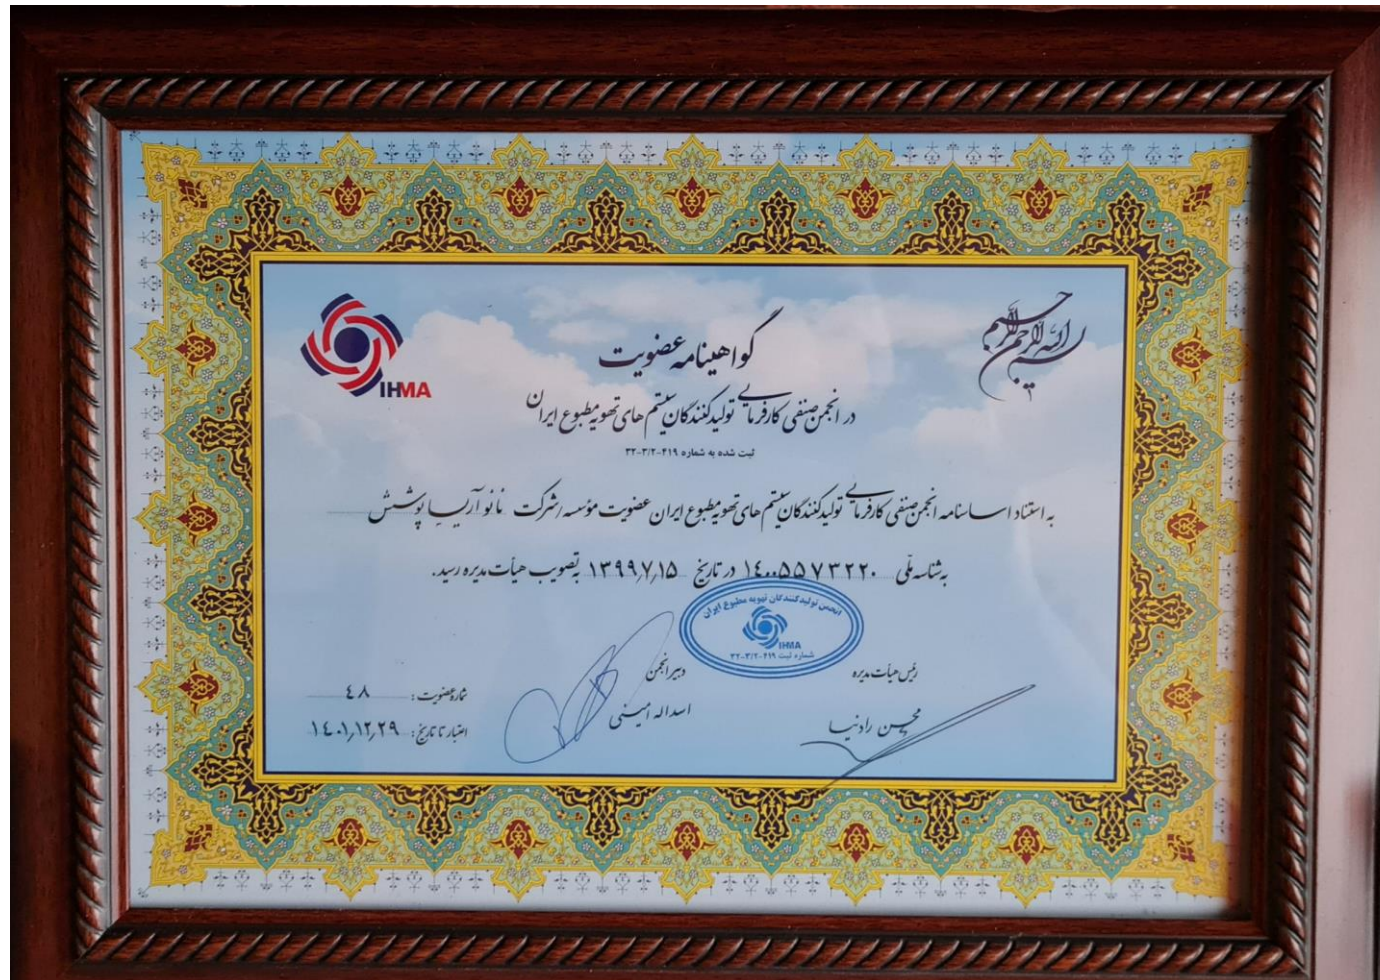 بسم الله الرحمن الرحیم
IHMA
گواهینامه عضویت
در انجمن صنفی کارفرمائی تولیدکنندگان سیستم های تهویه مطبوع ایران
ثبت شده به شماره ۴۱۹-۳/۲-۳۲
به استناد اساسنامه انجمن صنفی کارفرمائی تولیدکنندگان سیستم های تهویه مطبوع ایران عضویت مؤسسه/شرکت نانو آریسا پوشش
به شناسه ملّی ۱۴۰۰۵۵۷۳۲۲۰ در تاریخ ۱۳۹۹/۷/۱۵ به تصویب هیأت مدیره رسید.
انجمن تولیدکنندگان تهویه مطبوع ایران
IHMA
شماره ثبت ۴۱۹-۳/۲-۳۲
رئیس هیأت مدیره
محسن رادنیا
دبیر انجمن
اسداله امینی
شماره عضویت : ۴۸
اعتبار تا تاریخ : ۱۴۰۱/۱۲/۲۹